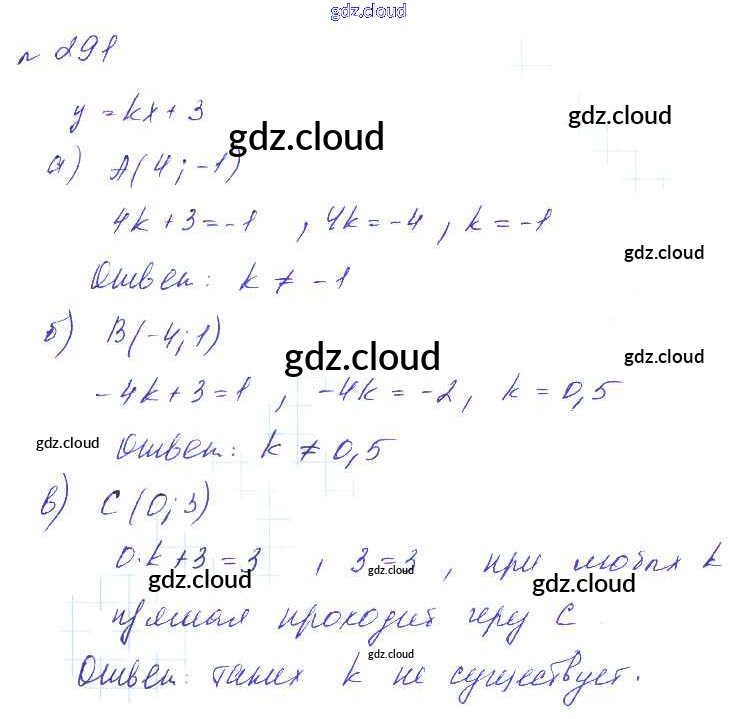 gdz.cloud
№ 291
y = kx + 3
gdz.cloud
gdz.cloud
а) A(4; -1)
4k + 3 = -1 , 4k = -4 , k = -1
gdz.cloud
Ответ: k ≠ -1
б) B(-4; 1)
gdz.cloud
gdz.cloud
-4k + 3 = 1 , -4k = -2, k = 0,5
gdz.cloud
Ответ: k ≠ 0,5
в) C(0; 3)
0·k + 3 = 3 , 3 = 3 , при любых k
gdz.cloud
gdz.cloud
gdz.cloud
прямая проходит через C
gdz.cloud
Ответ: таких k не существует.